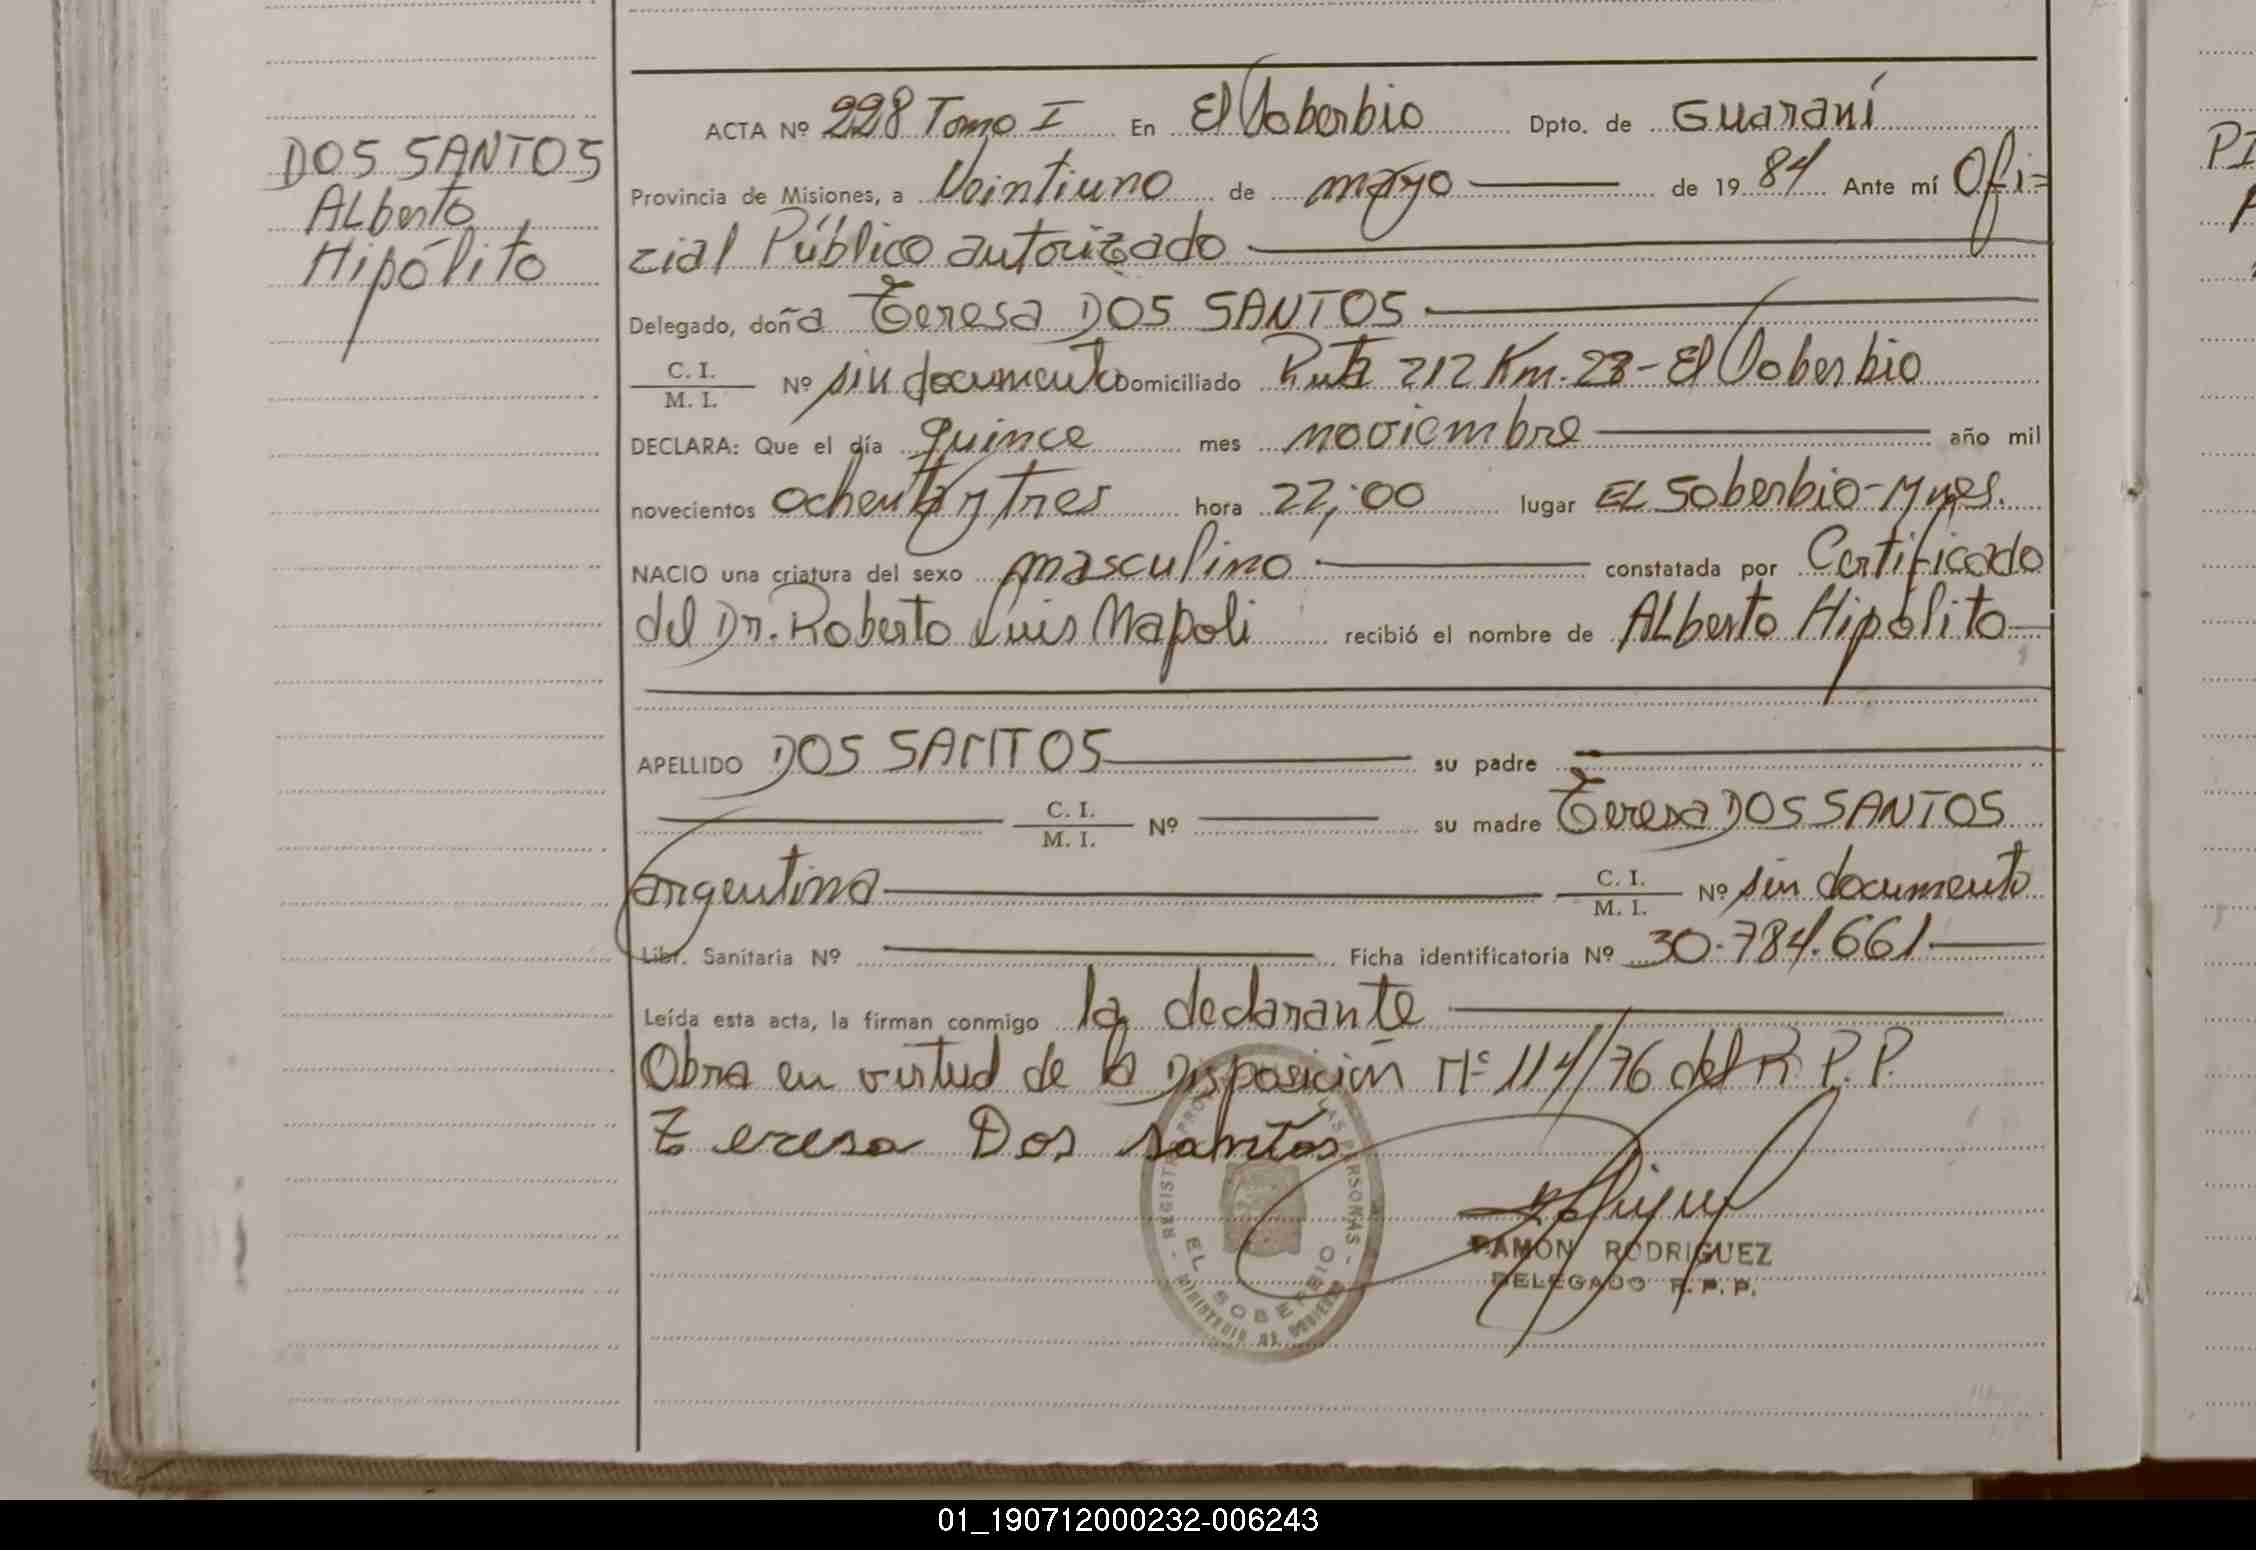 DOS SANTOS
ALberto
Hipólito
ACTA Nº 228 Tomo I En El Soberbio Dpto. de Guaraní
Provincia de Misiones, a Veintiuno de mayo de 1984 Ante mí Ofi=
cial Público autorizado
Delegado, doña Teresa DOS SANTOS
C. I.
M. I. Nº sin documento Domiciliado Ruta 212 Km. 28 - El Soberbio
DECLARA: Que el día quince mes noviembre año mil
novecientos ochenta y tres hora 22,00 lugar EL Soberbio - Mnes.
NACIO una criatura del sexo masculino constatada por Certificado
del Dr. Roberto Luis Napoli recibió el nombre de ALberto Hipólito
APELLIDO DOS SANTOS su padre
C. I.
M. I. Nº su madre Teresa DOS SANTOS
argentina C. I.
M. I. Nº sin documento
Libr. Sanitaria Nº Ficha identificatoria Nº 30.784.661
Leída esta acta, la firman conmigo la declarante
Obra en virtud de la Disposición Nº 114/76 del R. P. P.
Teresa Dos santos
REGISTRO PROV LAS PERSONAS
EL SOBERBIO
MINISTERIO DE GOBIERNO
RAMON RODRIGUEZ
DELEGADO R. P. P.
PI
01_190712000232-006243